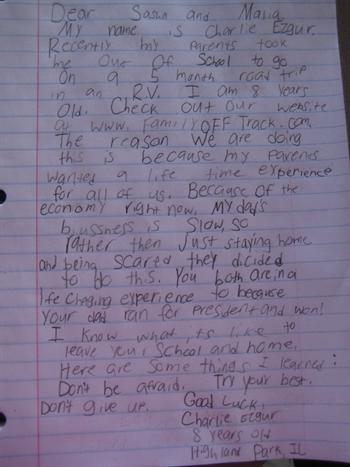 Dear Sasha and Malia
My name is Charlie Ezgur.
Recently my parents took
me out of school to go
on a 5 month road trip
in an R.V. I am 8 years
old. Check out our website
at www.FamilyOFFTrack.com.
The reason we are doing
this is because my parents
wanted a life time experience
for all of us. Because of the
economy right now, my dad's
bussness is slow, so
rather then just staying home
and being scared they decided
to do this. You both are in a
life changing experience to because
your dad ran for president and won!
I know what its like to
leave your school and home.
Here are some things I learned:
Don't be afraid. Try your best.
Don't give up. Good Luck,
Charlie Ezgur
8 years old
Highland Park, IL